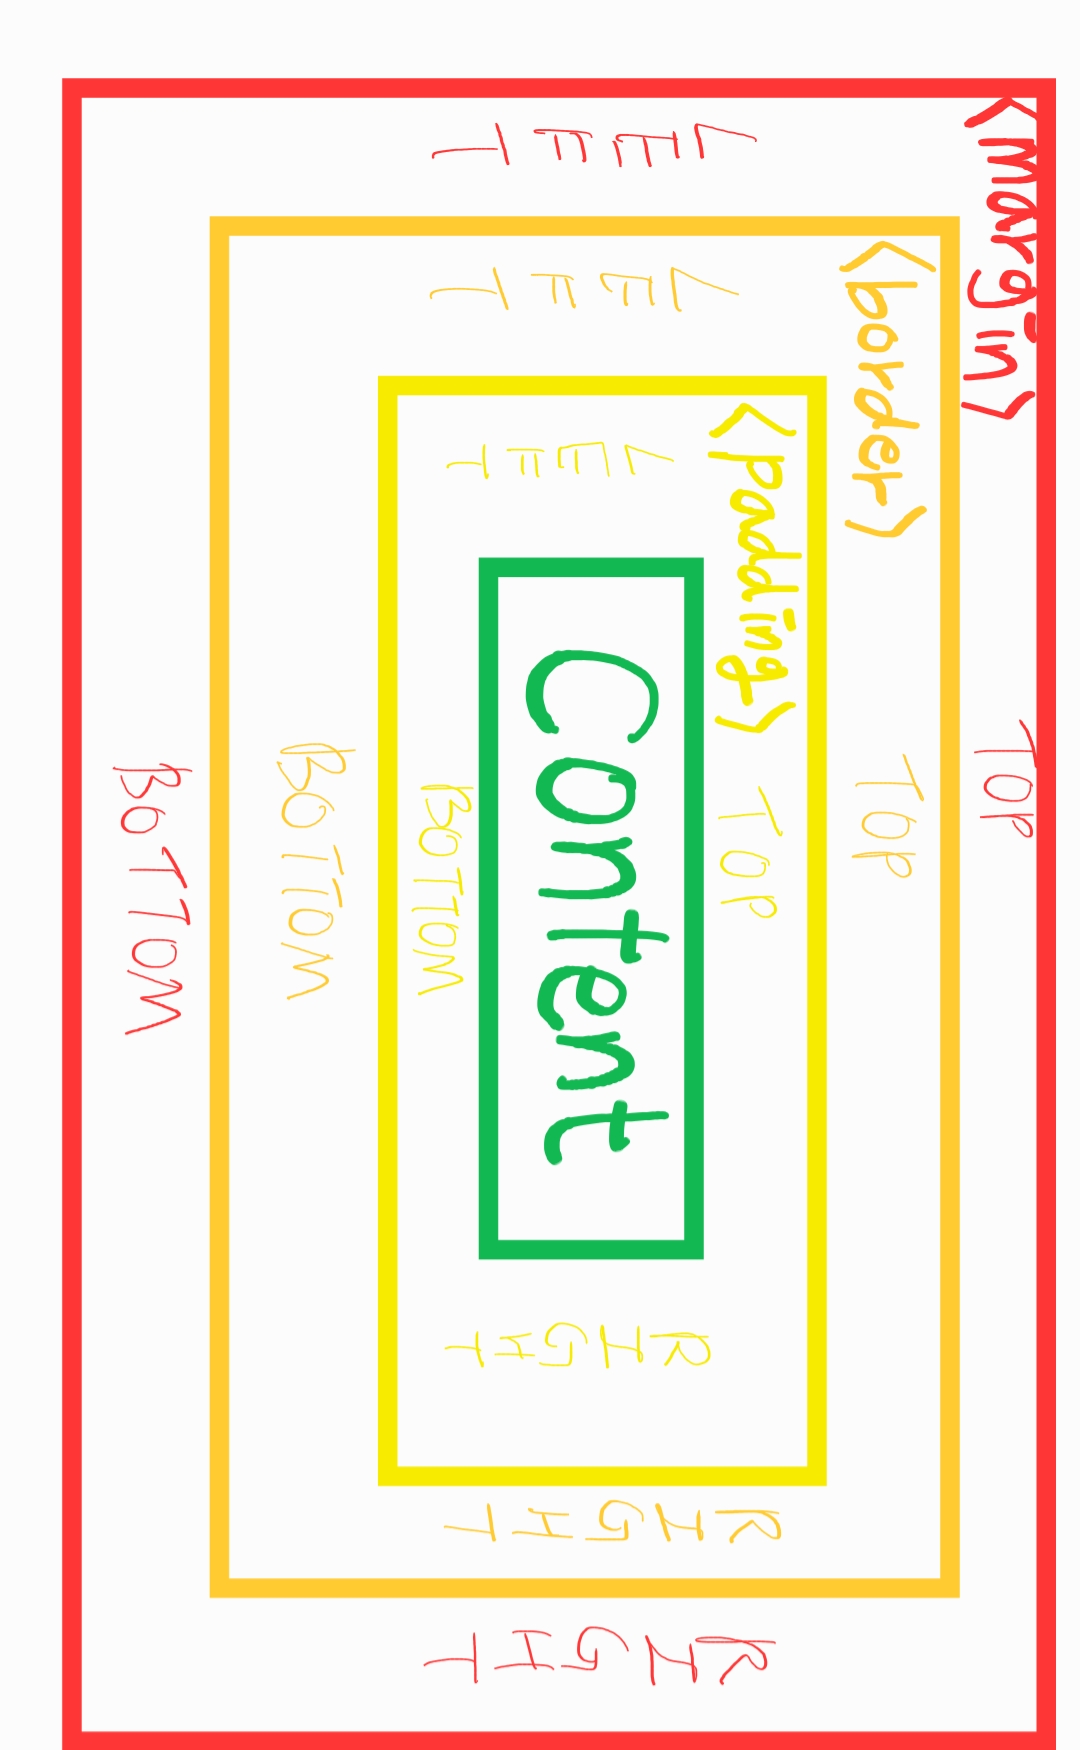 <margin>
TOP
<border>
TOP
<padding>
TOP
LEFT
LEFT
LEFT
Content
RIGHT
RIGHT
RIGHT
BOTTOM
BOTTOM
BOTTOM